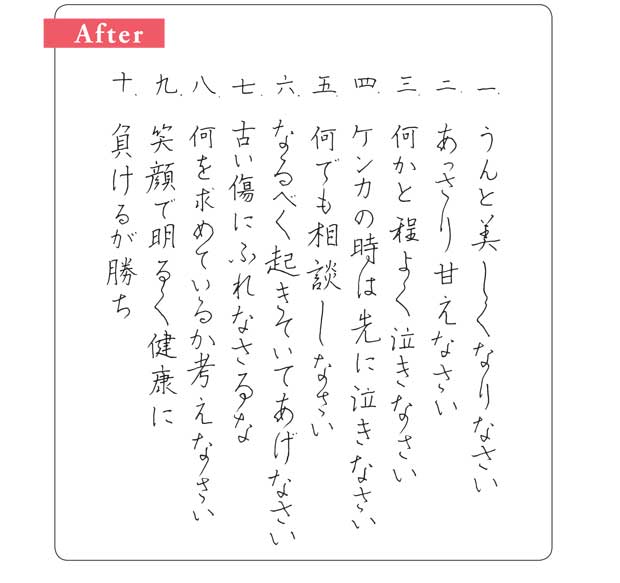 After
一. うんと美しくなりなさい
二. あっさり甘えなさい
三. 何かと程よく泣きなさい
四. ケンカの時は先に泣きなさい
五. 何でも相談しなさい
六. なるべく起きていてあげなさい
七. 古い傷にふれなさるな
八. 何を求めているか考えなさい
九. 笑顔で明るく健康に
十. 負けるが勝ち